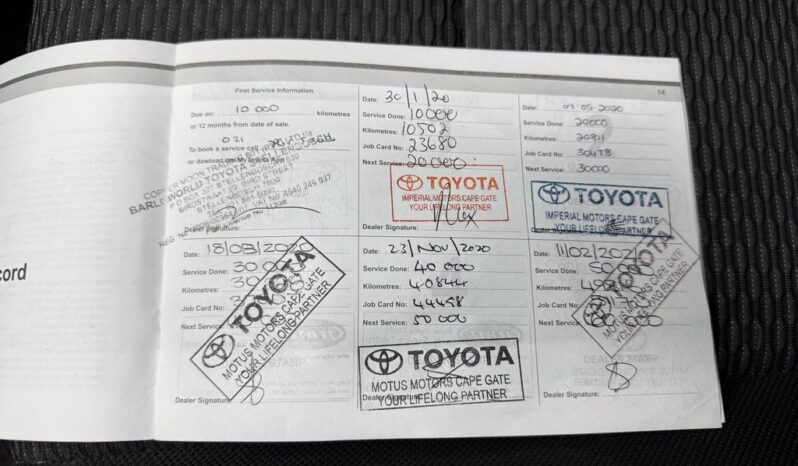 cord
14
First Service Information
Due on: 10 000 kilometres
or 12 months from date of sale.
021
To book a service call
or dowload the MyToyota App
BARLOWORLD TOYOTA
Dealer Signature:
Date: 30/1/20
Service Done: 10000
Kilometres: 10502
Job Card No: 23680
Next Service: 20000
TOYOTA
IMPERIAL MOTORS CAPE GATE
YOUR LIFELONG PARTNER
Dealer Signature:
Date: 07-05-2020
Service Done: 20000
Kilometres: 20811
Job Card No: 30478
Next Service: 30000
TOYOTA
IMPERIAL MOTORS CAPE GATE
YOUR LIFELONG PARTNER
Dealer Signature:
Date: 18/08/2020
Service Done: 30 000
Kilometres:
Job Card No:
Next Service:
TOYOTA
MOTUS MOTORS CAPE GATE
YOUR LIFELONG PARTNER
Dealer Signature:
Date: 23/Nov/2020
Service Done: 40 000
Kilometres: 40844
Job Card No: 44458
Next Service: 50 000
TOYOTA
MOTUS MOTORS CAPE GATE
YOUR LIFELONG PARTNER
Dealer Signature:
Date: 11/02/2021
Service Done:
Kilometres:
Job Card No:
Next Service:
TOYOTA
MOTUS MOTORS CAPE GATE
YOUR LIFELONG PARTNER
Dealer Signature: